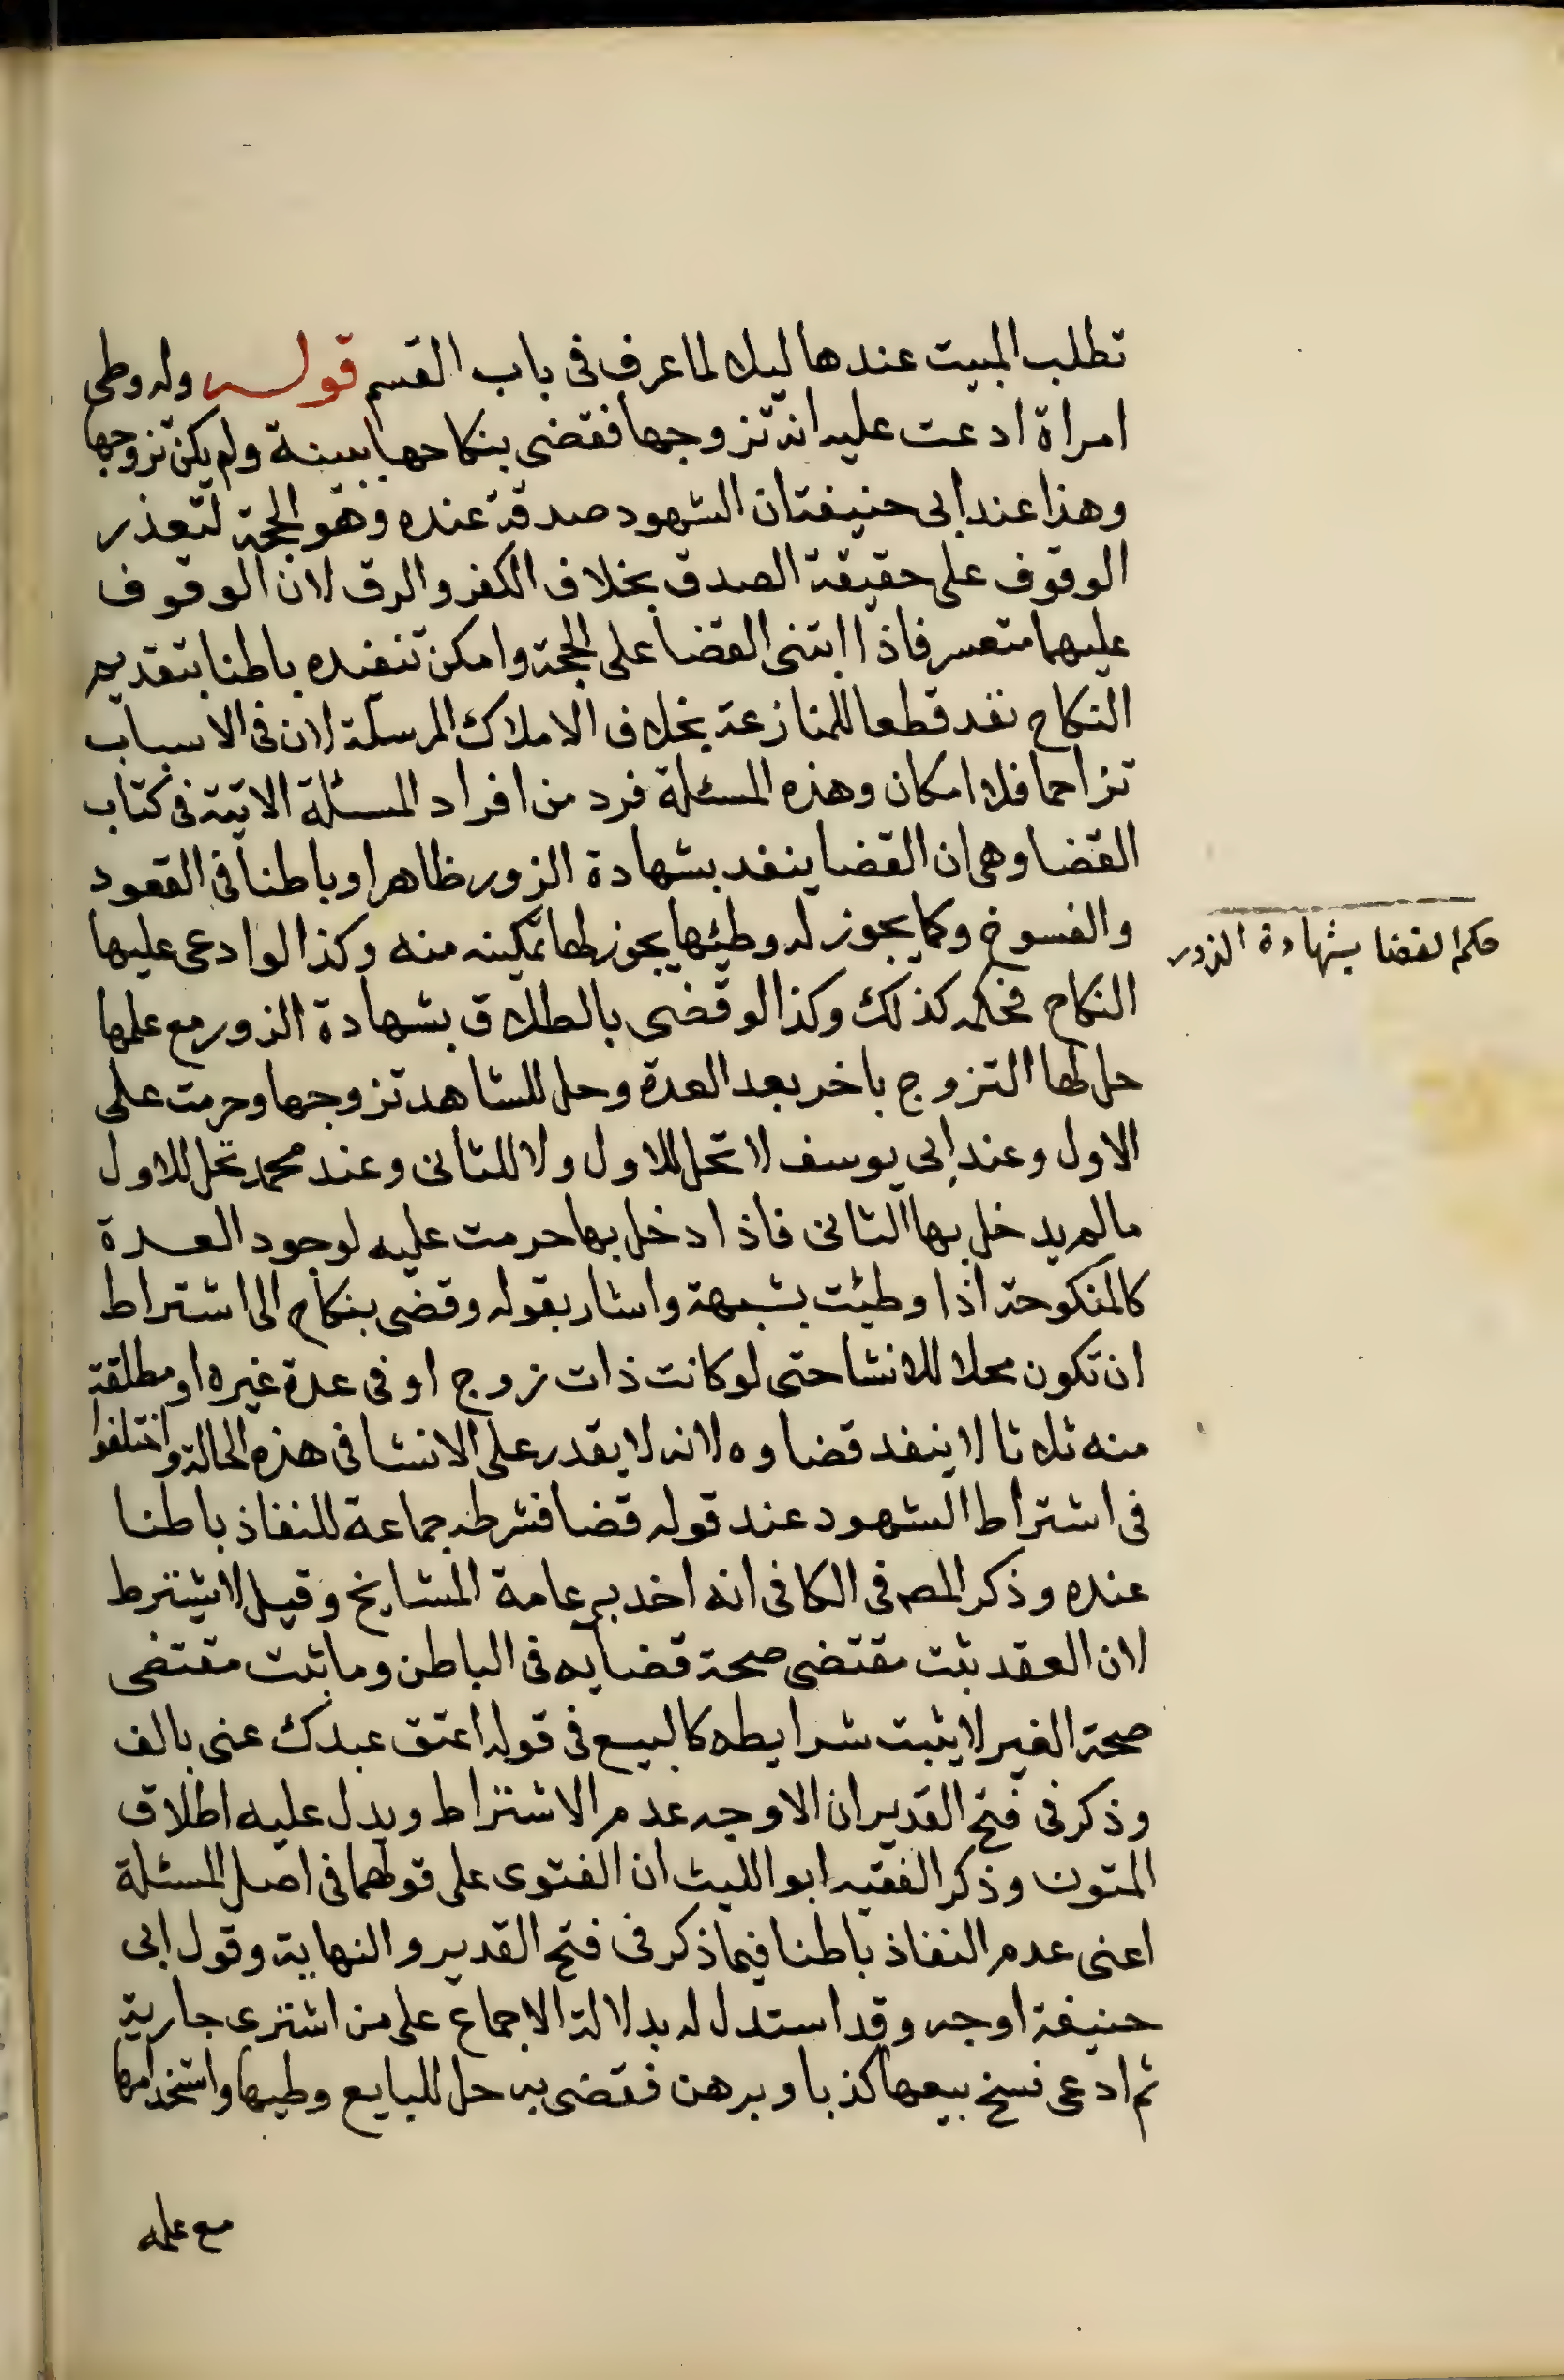 تطلب المبيت عندها ليلا لما عرف في باب القسم قوله وله وطى
امراة ادعت عليه انه تزوجها فقضى بنكاحها ببينة ولم يكن تزوجها
وهذا عند ابى حنيفة ان الشهود صدقة عنده وهو الحجة لتعذر
الوقوف على حقيقة الصدق بخلاف الكفر والرق لان الوقوف
عليهما متعسر فاذا ابتنى القضا على الحجة وامكن تنفيده باطنا بتقديم
النكاح نفد قطعا للمنازعة بخلاف الاملاك المرسلة لان فى الاسباب
تزاحما فلا امكان وهذه المسئلة فرد من افراد المسئلة الاتية فى كتاب
القضا وهى ان القضا ينفد بشهادة الزور ظاهرا وباطنا فى القعود
والفسوخ وكما يجوز له وطيها يجوز لها تمكينه منه وكذا لو ادعى عليها
حكم القضا بشهادة الزور
النكاح فحكمه كذلك وكذا لو قضى بالطلاق بشهادة الزور مع علمها
حل لها التزوج باخر بعد العدة وحل للشاهد تزوجها وحرمت على
الاول وعند ابى يوسف لا تحل للاول ولا للثانى وعند محمد تحل للاول
مالم يدخل بها الثانى فاذا دخل بها حرمت عليه لوجود العدة
كالمنكوحة اذا وطئت بشبهة واشار بقوله وقضى بنكاح الى اشتراط
ان تكون محلا للانشا حتى لو كانت ذات زوج او فى عدة غيره او مطلقة
منه ثلاثا لا ينفد قضاوه لانه لا يقدر على الانشا فى هذه الحالة واختلفوا
فى اشتراط الشهود عند قوله قضا فشرطه جماعة للنفاذ باطنا
عنده وذكر المصه فى الكافى انه اخد به عامة المشايخ وقيل لا يشترط
لان العقد يثت مقتضى صحة قضايه فى الباطن وما ثبت مقتضى
صحة الغير لا يثبت شرايطه كالبيع فى قوله اعتق عبدك عنى بالف
وذكر فى فتح القدير ان الاوجه عدم الاشتراط ويدل عليه اطلاق
المتون وذكر الفقيه ابو الليث ان الفتوى على قولهما فى اصل المسئلة
اعنى عدم النفاذ باطنا فيما ذكر فى فتح القدير والنهاية وقول ابى
حنيفة اوجه وقد استدل له بدلالة الاجماع على من اشترى جارية
ثم ادعى فسخ بيعها كذبا وبرهن فقضى به حل للبايع وطيها واستخدامها
مع علمه